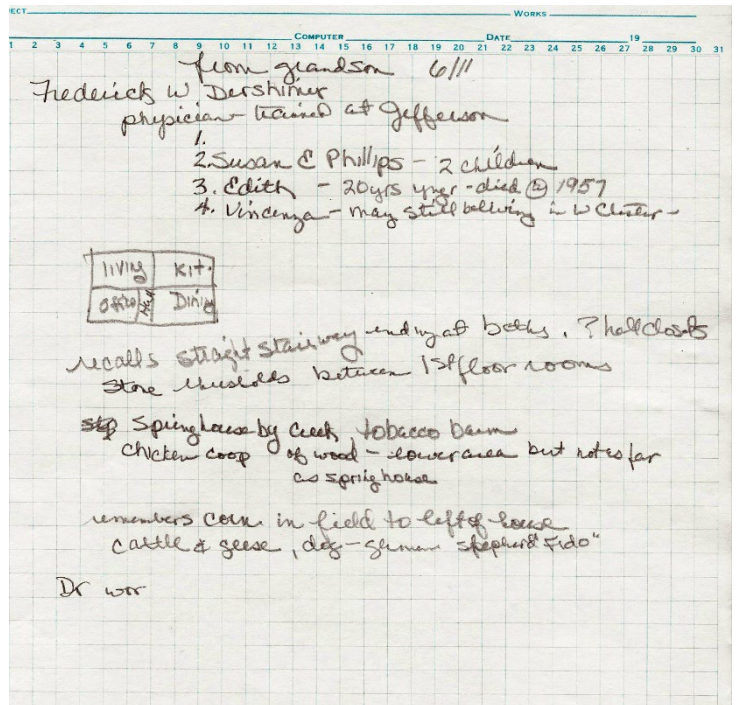 ECT
WORKS
COMPUTER DATE 19
1 2 3 4 5 6 7 8 9 10 11 12 13 14 15 16 17 18 19 20 21 22 23 24 25 26 27 28 29 30 31
from grandson 6/11
Frederick W Dershimer
physician trained at Jefferson
1.
2. Susan E Phillips - 2 children
3. Edith - 20yrs ynger - died @ 1957
4. Vincenza - may still be living in W Chester -
living Kit.
Office Hall Dining
recalls straight stairway ending at baths, ? hall closets
Stone thresholds between 1st floor rooms
Springhouse by creek tobacco barn
chicken coop of wood - lower area but not as far
as springhouse
remembers corn in field to left of house
cattle & geese, dog - german shepherd "Fido"
Dr wor